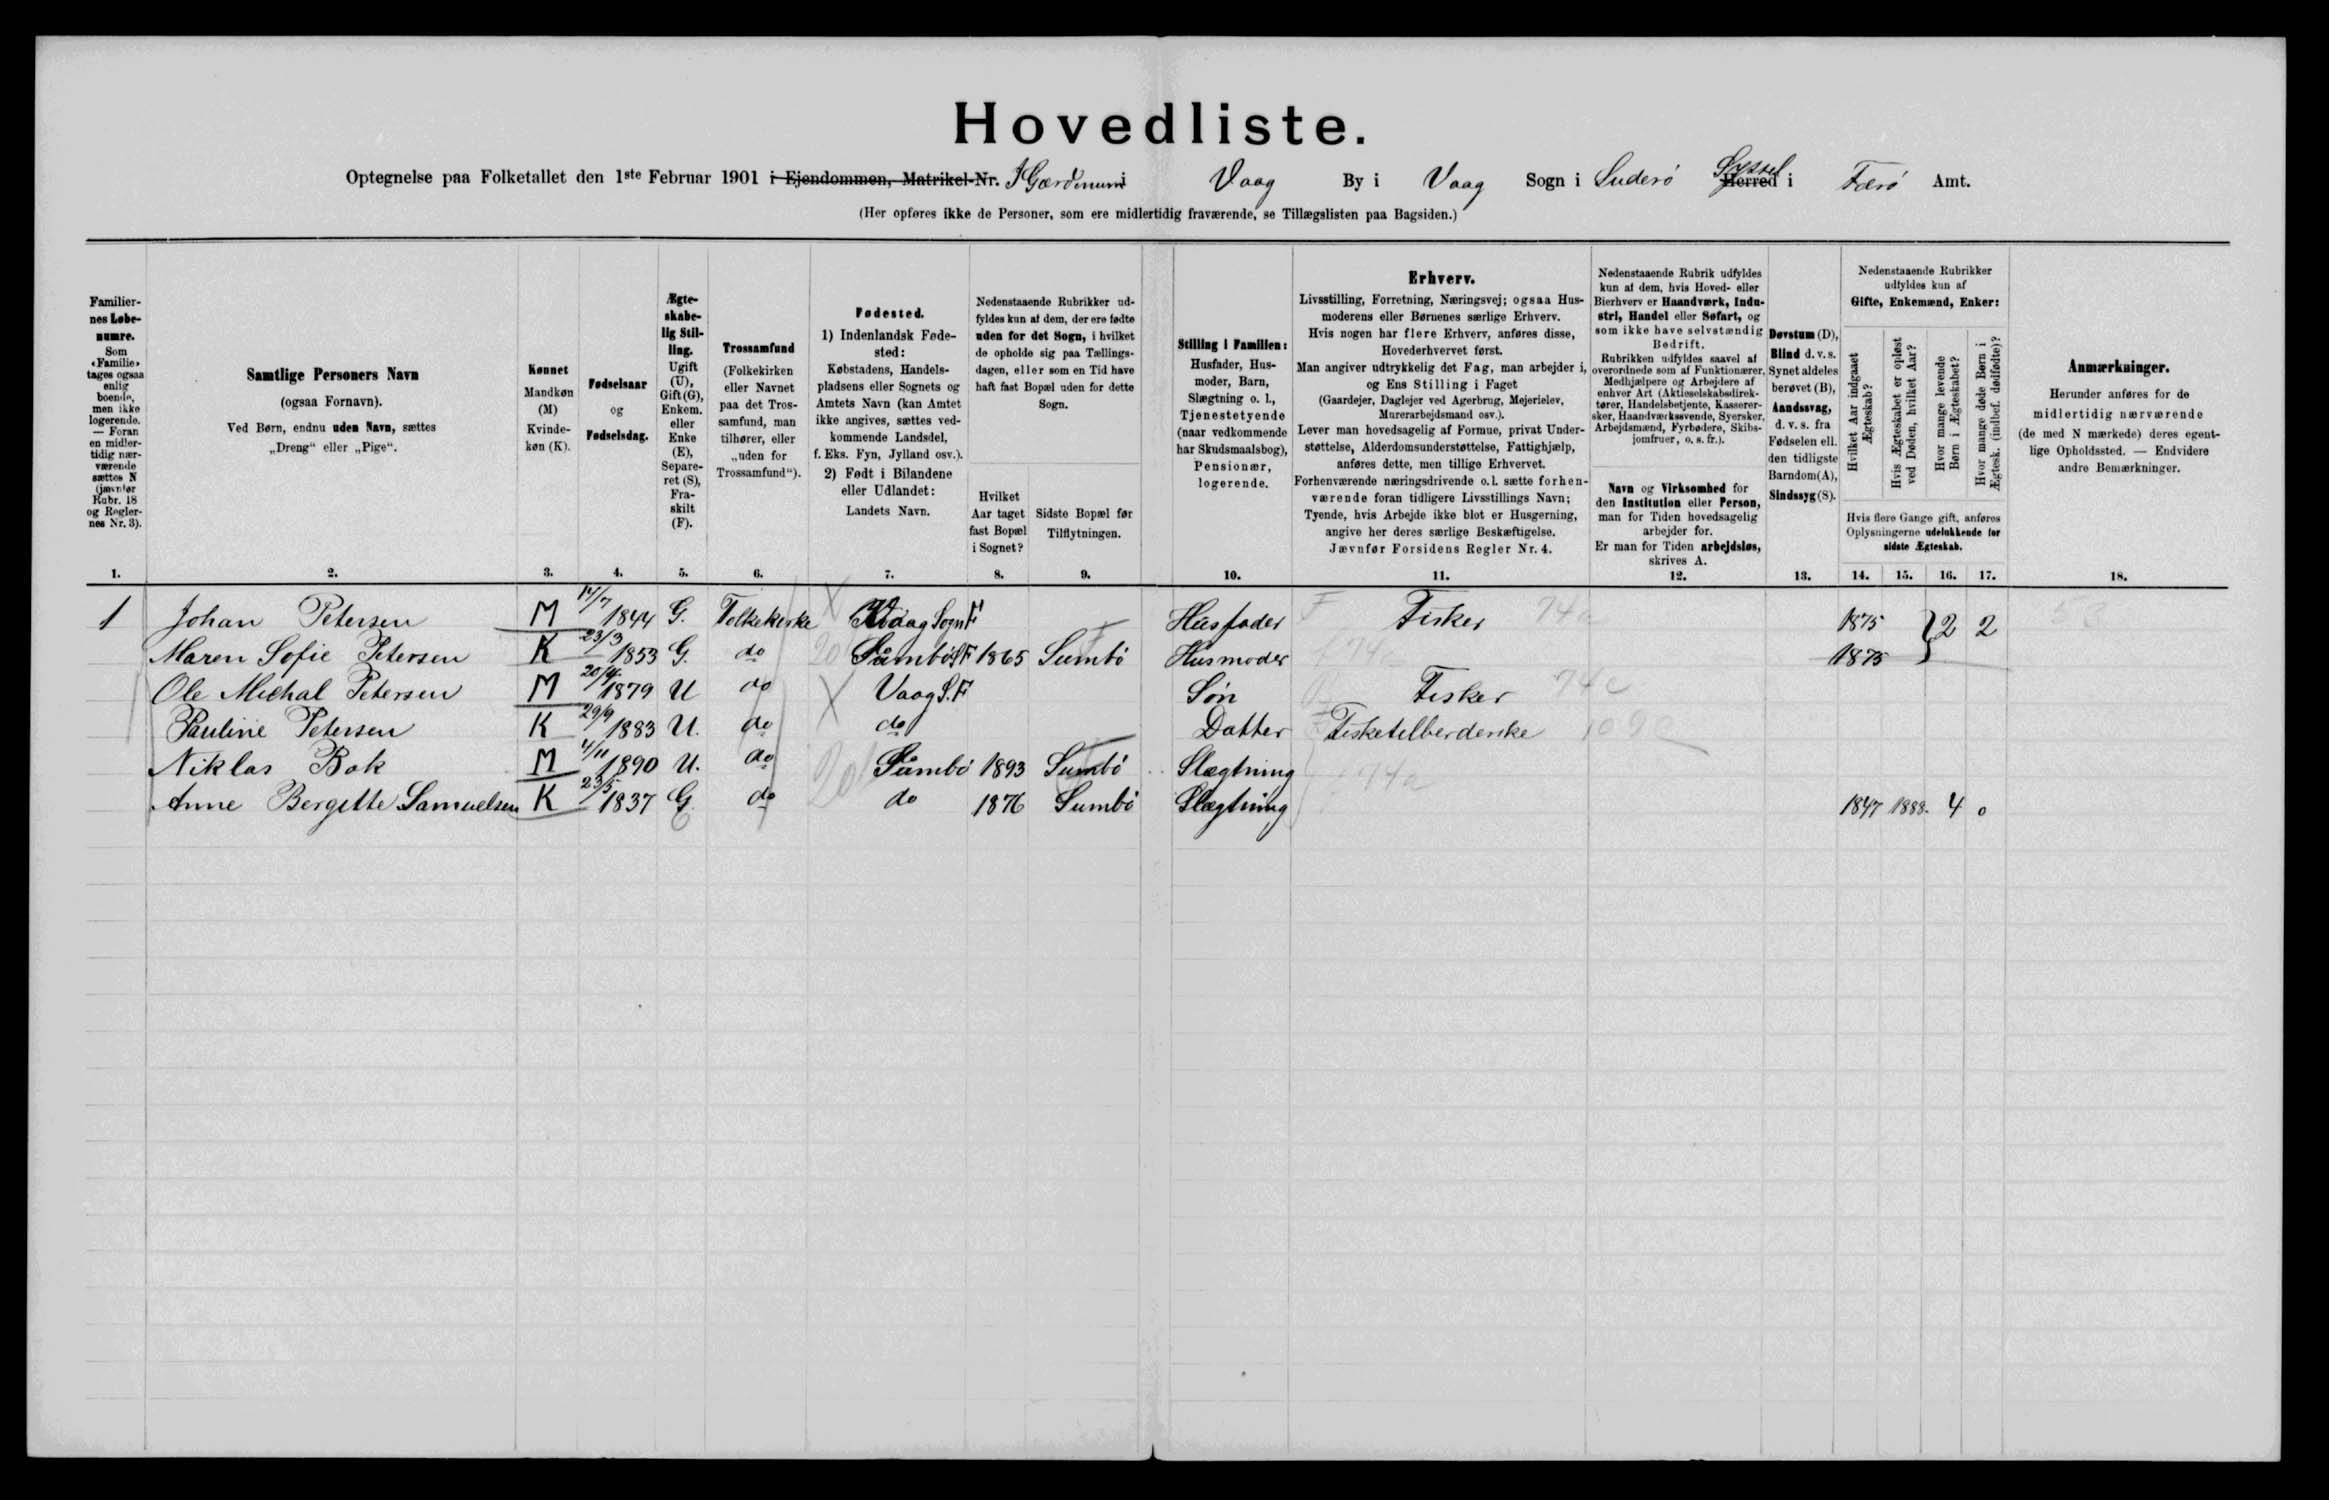 Hovedliste.
Optegnelse paa Folketallet den 1ste Februar 1901 i Ejendommen, Matrikel-Nr. I Gærdinum i Vaag By i Vaag Sogn i Suderö Herred Syssel i Færö Amt.
(Her opføres ikke de Personer, som ere midlertidig fraværende, se Tillægslisten paa Bagsiden.)
Familiernes Løbenumre. Som «Familie» tages ogsaa enlig boende, men ikke logerende. — Foran en midlertidig nærværende sættes N (jævnfør Rubr. 18 og Reglernes Nr. 3).
Samtlige Personers Navn (ogsaa Fornavn). Ved Børn, endnu uden Navn, sættes „Dreng“ eller „Pige“.
Kønnet Mandkøn (M) Kvindekøn (K).
Fødselsaar og Fødselsdag.
Ægteskabelig Stilling. Ugift (U), Gift (G), Enkem. eller Enke (E), Separeret (S), Fraskilt (F).
Trossamfund (Folkekirken eller Navnet paa det Trossamfund, man tilhører, eller „uden for Trossamfund“).
Fødested. 1) Indenlandsk Fødested: Købstadens, Handelspladsens eller Sognets og Amtets Navn (kan Amtet ikke angives, sættes vedkommende Landsdel, f. Eks. Fyn, Jylland osv.). 2) Født i Bilandene eller Udlandet: Landets Navn.
Nedenstaaende Rubrikker udfyldes kun af dem, der ere fødte uden for det Sogn, i hvilket de opholde sig paa Tællingsdagen, eller som en Tid have haft fast Bopæl uden for dette Sogn.
Hvilket Aar taget fast Bopæl i Sognet?
Sidste Bopæl før Tilflytningen.
Stilling i Familien: Husfader, Husmoder, Barn, Slægtning o. l., Tjenestetyende (naar vedkommende har Skudsmaalsbog), Pensionær, logerende.
Erhverv. Livsstilling, Forretning, Næringsvej; ogsaa Husmoderens eller Børnenes særlige Erhverv. Hvis nogen har flere Erhverv, anføres disse, Hovederhvervet først. Man angiver udtrykkelig det Fag, man arbejder i, og Ens Stilling i Faget (Gaardejer, Daglejer ved Agerbrug, Mejerielev, Murerarbejdsmand osv.). Lever man hovedsagelig af Formue, privat Understøttelse, Alderdomsunderstøttelse, Fattighjælp, anføres dette, men tillige Erhvervet. Forhenværende næringsdrivende o. l. sætte forhenværende foran tidligere Livsstillings Navn; Tyende, hvis Arbejde ikke blot er Husgerning, angive her deres særlige Beskæftigelse. Jævnfør Forsidens Regler Nr. 4.
Nedenstaaende Rubrik udfyldes kun af dem, hvis Hoved- eller Bierhverv er Haandværk, Industri, Handel eller Søfart, og som ikke have selvstændig Bedrift. Rubrikken udfyldes saavel af overordnede som af Funktionærer, Medhjælpere og Arbejdere af enhver Art (Aktieselskabsdirektører, Handelsbetjente, Kasserersker, Haandværkssvende, Syersker, Arbejdsmænd, Fyrbødere, Skibsjomfruer, o. s. fr.).
Navn og Virksomhed for den Institution eller Person, man for Tiden hovedsagelig arbejder for. Er man for Tiden arbejdsløs, skrives A.
Døvstum (D), Blind d. v. s. Synet aldeles berøvet (B), Aandssvag, d. v. s. fra Fødselen ell. den tidligste Barndom (A), Sindssyg (S).
Nedenstaaende Rubrikker udfyldes kun af Gifte, Enkemænd, Enker:
Hvilket Aar indgaaet Ægteskab?
Hvis Ægteskabet er opløst ved Døden, hvilket Aar?
Hvor mange levende Børn i Ægteskabet?
Hvor mange døde Børn i Ægtesk. (indbef. dødfødte)?
Hvis flere Gange gift, anføres Oplysningerne udelukkende for sidste Ægteskab.
Anmærkninger. Herunder anføres for de midlertidig nærværende (de med N mærkede) deres egentlige Opholdssted. — Endvidere andre Bemærkninger.
1. 2. 3. 4. 5. 6. 7. 8. 9. 10. 11. 12. 13. 14. 15. 16. 17. 18.
1 Johan Petersen M 1844 G. Folkekirke Vaag Sogn F Husfader Fisker 1875 2 2
Maren Sofie Petersen K 23/3 1853 G. do Sumbö S F 1865 Sumbö Husmoder 1875
Ole Michal Petersen M 1879 U do Vaag S. F Søn Fisker
Pauline Petersen K 29/9 1883 U. do do Datter
Niklas Bok M 4/11 1890 U. do Sumbö 1893 Sumbö Slægtning
Anne Bergitte Samuelsen K 23/5 1837 G do do 1876 Sumbö Slægtning 1847 1888. 4 0